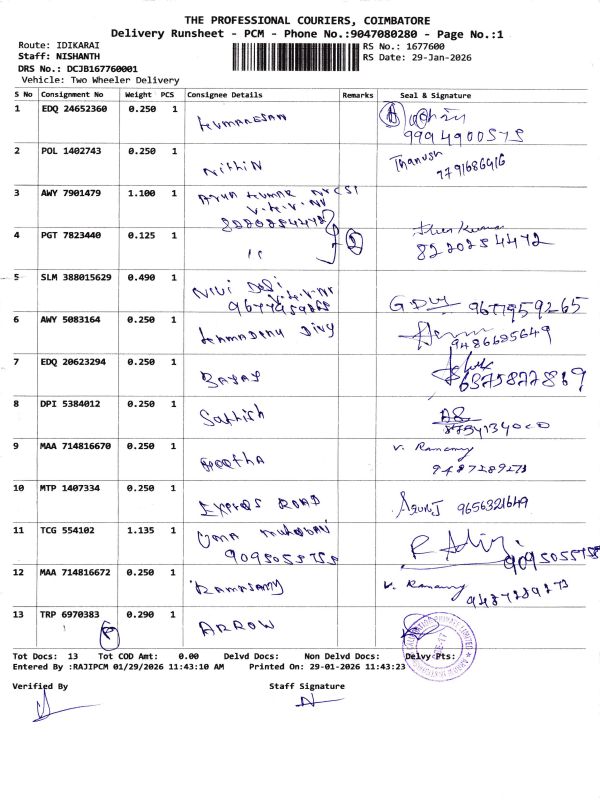 THE PROFESSIONAL COURIERS, COIMBATORE
Delivery Runsheet - PCM - Phone No.:9047080280 - Page No.:1
Route: IDIKARAI
RS No.: 1677600
Staff: NISHANTH
RS Date: 29-Jan-2026
DRS No.: DCJB167760001
Vehicle: Two Wheeler Delivery
S No Consignment No Weight PCS Consignee Details Remarks Seal & Signature
1 EDQ 24652360 0.250 1 Kumaresan
9994900575
2 POL 1402743 0.250 1 Nithin Thanush
7791686916
3 AWY 7901479 1.100 1 Arun Kumar
V.K.V.NV
8220254472
4 PGT 7823440 0.125 1 " 2 Kumar
8220254472
5 SLM 388015629 0.490 1 Nivi
9677959265 9677959265
6 AWY 5083164 0.250 1
9486625649
7 EDQ 20623294 0.250 1
6375872869
8 DPI 5384012 0.250 1 Sathish
9 MAA 714816670 0.250 1 Geetha V. Ramamy
9487289273
10 MTP 1407334 0.250 1 Express Road 9656321649
11 TCG 554102 1.135 1 Uma
9095055755 9095055755
12 MAA 714816672 0.250 1 Ramasamy V. Ramamy
9487289273
13 TRP 6970383 0.290 1 ARROW
Tot Docs: 13 Tot COD Amt: 0.00 Delvd Docs: Non Delvd Docs: Delvy Pts:
Entered By :RAJIPCM 01/29/2026 11:43:10 AM Printed On: 29-01-2026 11:43:23
Verified By Staff Signature